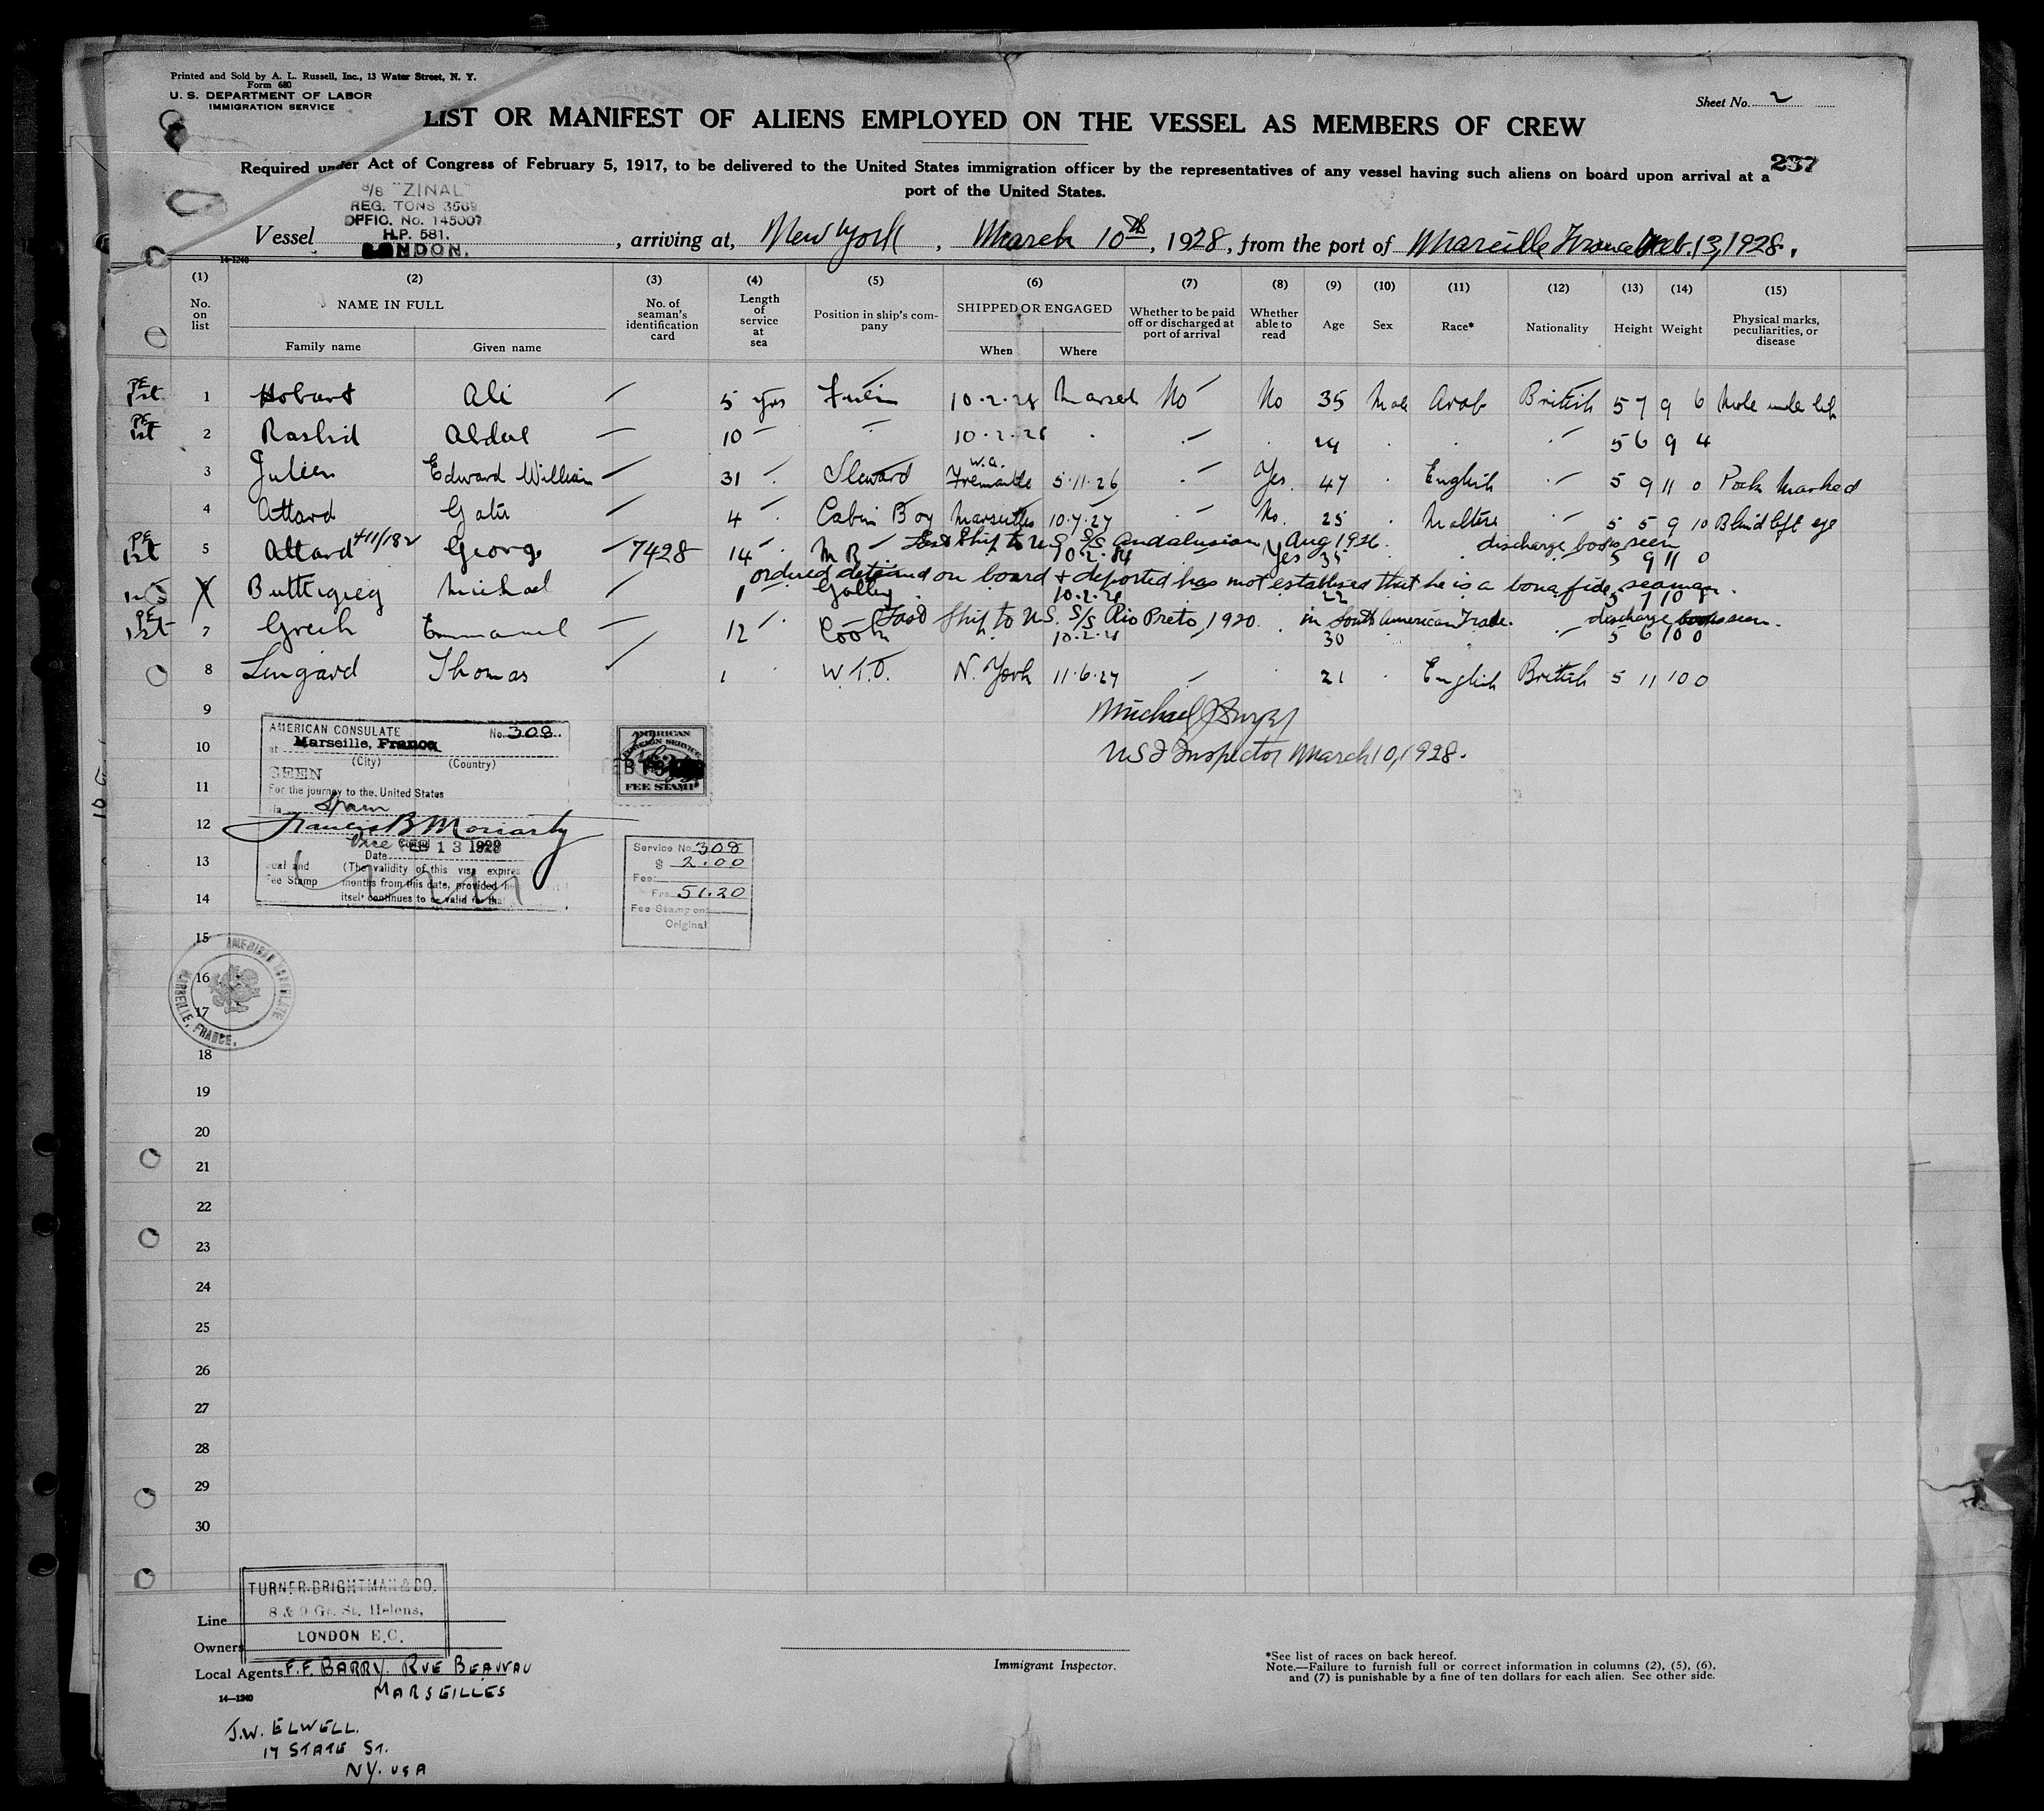 Printed and Sold by A. L. Russell, Inc., 13 Water Street, N. Y.
Form 680
U. S. DEPARTMENT OF LABOR
IMMIGRATION SERVICE
Sheet No. 2
LIST OR MANIFEST OF ALIENS EMPLOYED ON THE VESSEL AS MEMBERS OF CREW
Required under Act of Congress of February 5, 1917, to be delivered to the United States immigration officer by the representatives of any vessel having such aliens on board upon arrival at a
port of the United States.
237
S/S "ZINAL"
REG. TONS 3569
OFFIC. No. 145007
H.P. 581.
LONDON.
Vessel , arriving at, New York , March 10th, 1928, from the port of Marseille France Feb. 13, 1928.
14-1240
(1) (2) (3) (4) (5) (6) (7) (8) (9) (10) (11) (12) (13) (14) (15)
No. on list NAME IN FULL No. of seaman's identification card Length of service at sea Position in ship's company SHIPPED OR ENGAGED Whether to be paid off or discharged at port of arrival Whether able to read Age Sex Race* Nationality Height Weight Physical marks, peculiarities, or disease
Family name Given name When Where
1 Hobart Ali 5 yrs 10.2.28 Marsels No No 35 Male Arab British 5 7 9 6 Mole under
2 Rashid Abdul 10 10.2.28 5 6 9 4
3 Julien Edward William 31 Steward W.A. Fremantle 5.11.26 Yes 47 English 5 9 11 0 Pock Marked
4 Attard 4 Cabin Boy Marseilles 10.7.27 No. 25 Maltese 5 5 9 10 Blind left eye
Last Ship to U.S. S/S Andalusian, Aug 1926. discharge books seen
5 Attard 411/182 George 7428 14 M R 10.2.28 Yes 35 5 9 11 0
ordered detained on board & deported has not established that he is a bona fide seaman.
X Buttigieg Michael 1 Galley 10.2.28 22 5 7 10 8
Last Ship to U.S. S/S Rio Preto, 1920. in South American Trade. discharge books seen.
7 Grech Emmanuel 12 Cook 10.2.28 30 5 6 10 0
8 Lingard Thomas 1 W.T.O. N. York 11.6.27 21 English British 5 11 10 0
9
Michael J
10
U S I Inspector March 10, 1928.
11
12
13
14
15
16
17
18
19
20
21
22
23
24
25
26
27
28
29
30
AMERICAN CONSULATE No. 308
at Marseille, France
(City) (Country)
SEEN
For the journey to the United States
via Spain
Francis B Moriarty
Vice Consul
Date FEB 13 1928
Seal and Fee Stamp
(The validity of this visa expires
months from this date, provided
itself continues to be valid for that
AMERICAN
FOREIGN SERVICE
FEE STAMP
Service No. 308
$ 2.00
Fee:
Frs. 51.20
Fee Stamp on
Original
AMERICAN CONSULATE
MARSEILLE, FRANCE.
TURNER-BRIGHTMAN & CO.
8 & 9 Gt. St. Helens,
LONDON E.C.
Line
Owners
Local Agents F.F. BARRY. RUE BEAUVAU
MARSEILLES
14—1240
J.W. ELWELL.
17 STATE ST.
NY. USA
Immigrant Inspector.
*See list of races on back hereof.
Note.—Failure to furnish full or correct information in columns (2), (5), (6),
and (7) is punishable by a fine of ten dollars for each alien. See other side.